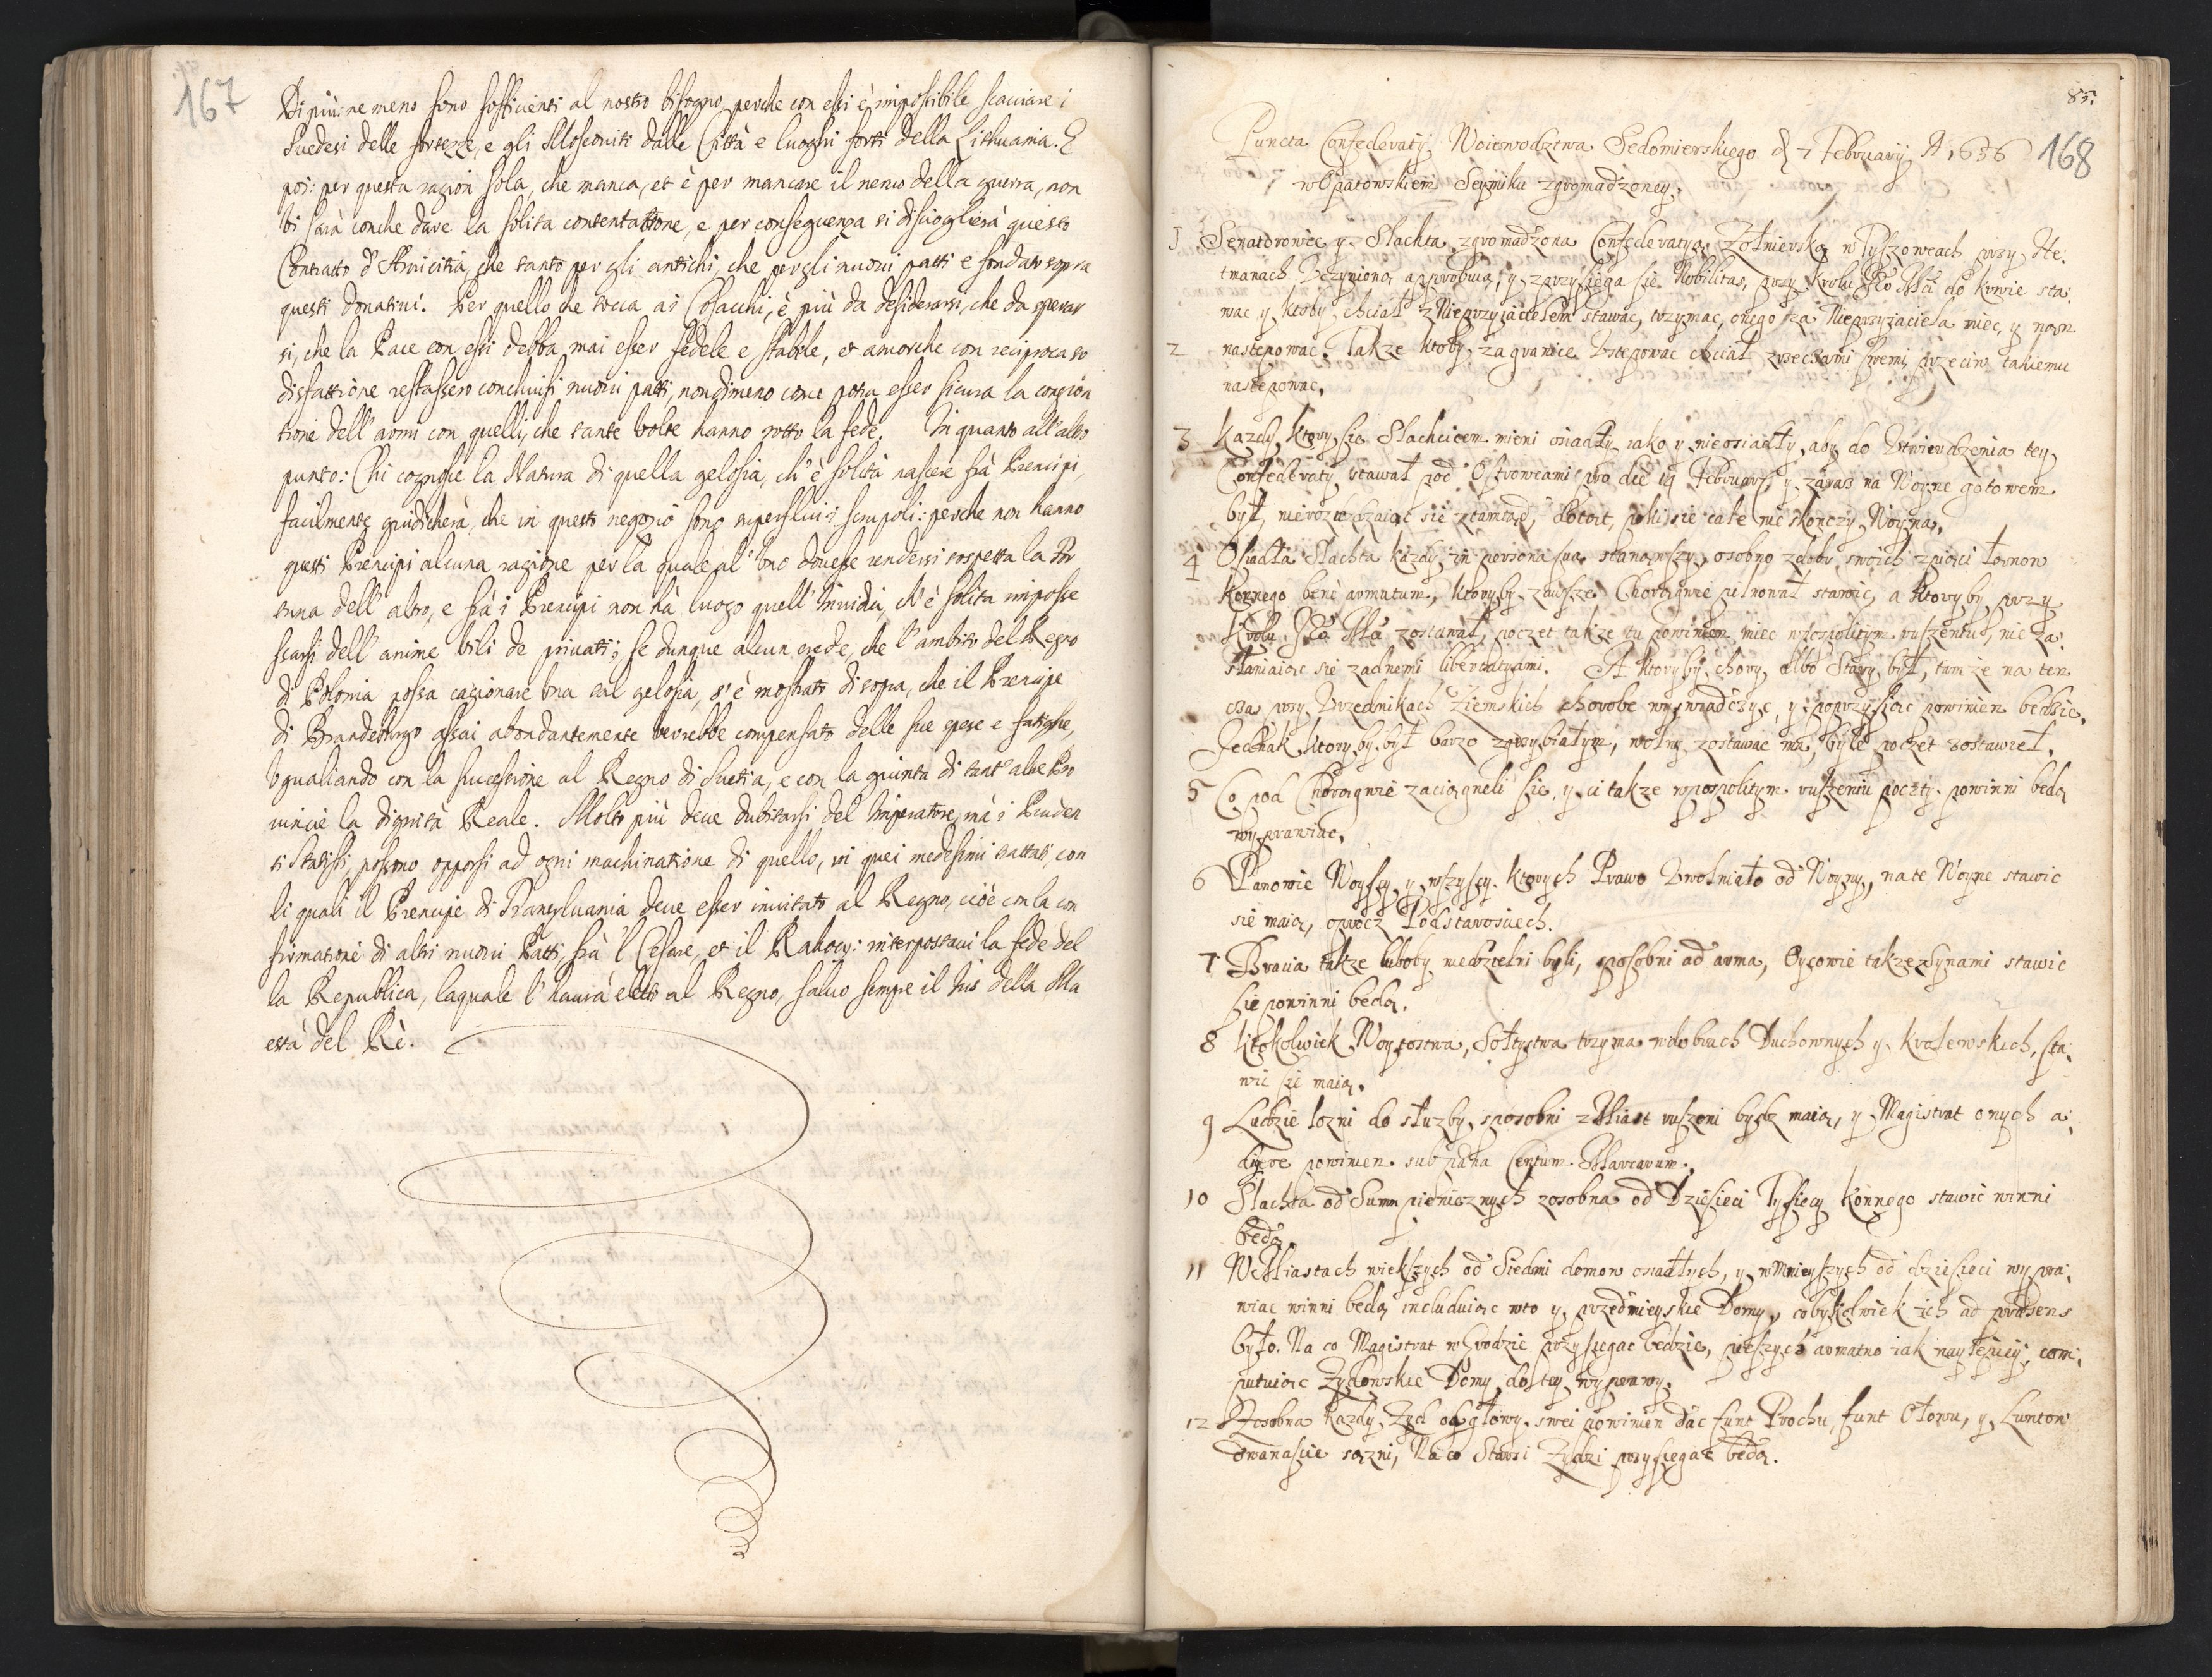 167
Di più: ne meno sono sofficienti al nostro bisogno, perche con essi è impossibile scacciare i
Suedesi delle fortezze, e gli Moscouiti dalle Città e luoghi forti della Lithuania. E
poi: per questa ragion sola, che manca, et è per mancare il neruo della guerra, non
vi sarà conche dare la solita contentattione, e per conseguenza si disciogliera questo
Contratto d'Amicitia, che tanto per gli antichi, che per gli nuoui patti e fondato sopra
questi donatiui. Per quello che tocca ai Cosacchi, è più da desiderarsi, che da sperar
si, che la Pace con essi debba mai esser fedele e stabile, et ancorche con reciproca so
disfattione restassero conchiusi nuoui patti, nondimeno come potra esser sicura la congion
tione dell'armi con quelli, che tante volte hanno rotto la fede. In quanto all'altro
punto: Chi cognosce la Natura di quella gelosia, ch'è solita nascere frà Prencipi,
facilmente giudicherà, che in questo negozio sono superflui i scrupoli: perche non hanno
questi Prencipi alcuna ragione per la quale al'vno douesse rendersi sospetta la For
tuna dell'altro, e frà i Prencipi non hà luogo quell'Inuidia, ch'è solita imposse
ssarsi dell'anime vili de priuati; se dunque alcun crede, che l'ambito del Regno
di Polonia possa cagionare vna tal gelosia, s'è mostrato di sopra, che il Prencipe
di Brandeburgo assai abondantemente verrebbe compensato delle sue spese e fatighe,
vgualiando con la successione al Regno di Suetia, e con la giunta di tant'altre Pro
uincie la dignità Reale. Molto più deue dubitarsi del Imperatore, mà i Pruden
ti Statisti, possono opporsi ad ogni machinatione di quello, in quei medesimi trattati, con
li quali il Prencipe di Transyluania deue esser inuitato al Regno, cioè con la con
firmatione di altri nuoui Patti, frà 'l Cesare, et il Rakocy: interpostaui la fede del
la Republica, laquale l'haurà eletto al Regno, saluo sempre il Ius della Ma
està del Rè.
85.
168
Puncta Confederatij Woiewodztwa Sedomierskiego d 7 Februarij A 1656
w Opatowskiem Seymiku zgromadzoney.
1 Senatorowie y Slachta zgromadzona Confederatyą Zołnierską w Tyszowcach przy He:
tmanach Uczyniona approbuią, y zprzysięga się Nobilitas, przy Krolu Jeo Mci do krwie sta:
wac y ktoby chciał z Nieprzyiacielem stawac, trzymac, onego za Nieprzyiaciela miec, y nań
2 następowac. Takze ktoby za granice Ustepowac chciał z rzeczami swemi, przeciw takiemu
nastepowac.
3 Kazdy ktory się Slachcicem mieni osiadły iako y nieosiadły, aby do Utwierdzenia tey
Confederatij stawał pod Ostrowcami pro die 19 Februarij, y zaraz na Woyne gotowem
był, nierozieżdzaiąc sie ztamtąd, Potoit, poki sie cale nie skonczy Woyna.
4 Osiadła Slachta kazdy in persona sua stanąwszy, osobno z dobr swoich z piąci łanow
konnego bene armatum, ktoryby zawsze Chorągwie pilnował stawić, a ktoryby przy
Krolu Jeo Mci zostawał, poczet takze tu powinien miec w pospolitym ruszeniu, nie za:
słaniaiąc sie zadnemi libertatyami. A ktoryby chory albo Stary był, tamże na ten
czas przy Urzednikach Ziemskich chorobe wyswiadczyc, y poprzysiąc powinien bedzie.
Jednak ktoryby był barzo zgrzybiałym, wolny zostawac ma, byle poczet zostawieł.
5 Co pod Chorągwie zaciągneli się, y ci takze w pospolitym ruszeniu poczty powinni bedą
wyprawiac.
6 Panowie Woyscy y wszyscy ktorych Prawo Uwolnieło od Woyny, na te Woyne stawic
sie maią, oprocz Podstarosciech.
7 Bracia takze luboby niedzielni byli, sposobni ad arma, Oycowie takze z Synami stawic
się powinni bedą.
8 Ktokolwiek Woytostwa, Sołtystwa trzyma w dobrach Duchownych y Krolewskich, sta:
wic się maią.
9 Ludzie lozni do słuzby sposobni z Miast ruszeni bydz maią, y Magistrat onych a:
digere powinien sub pæna Centum Marcarum.
10 Slachta od Summ pieniecznych zosobna od Dziesieci Tysiecy Konnego stawic winni
bedą.
11 W Miastach wiekszych od Siedmi domow osiadłych, y w Mnieyszych od dziesiaci wypra:
wiac winni bedą includuiąc w to y przedmieyskie Domy, cobykolwiek ich ad præsens
było. Na co Magistrat w Grodzie przysięgac bedzie, pieszych armatno iak naytęzey, com:
putuiąc Zydowskie Domy do tey wyprawy.
12 Zosobna kazdy Zyd od głowy swei powinien dac funt Prochu, funt Ołowu, y Luntow
dwanascie sązni, Na co Starsi Zydzi przysiegac bedą.